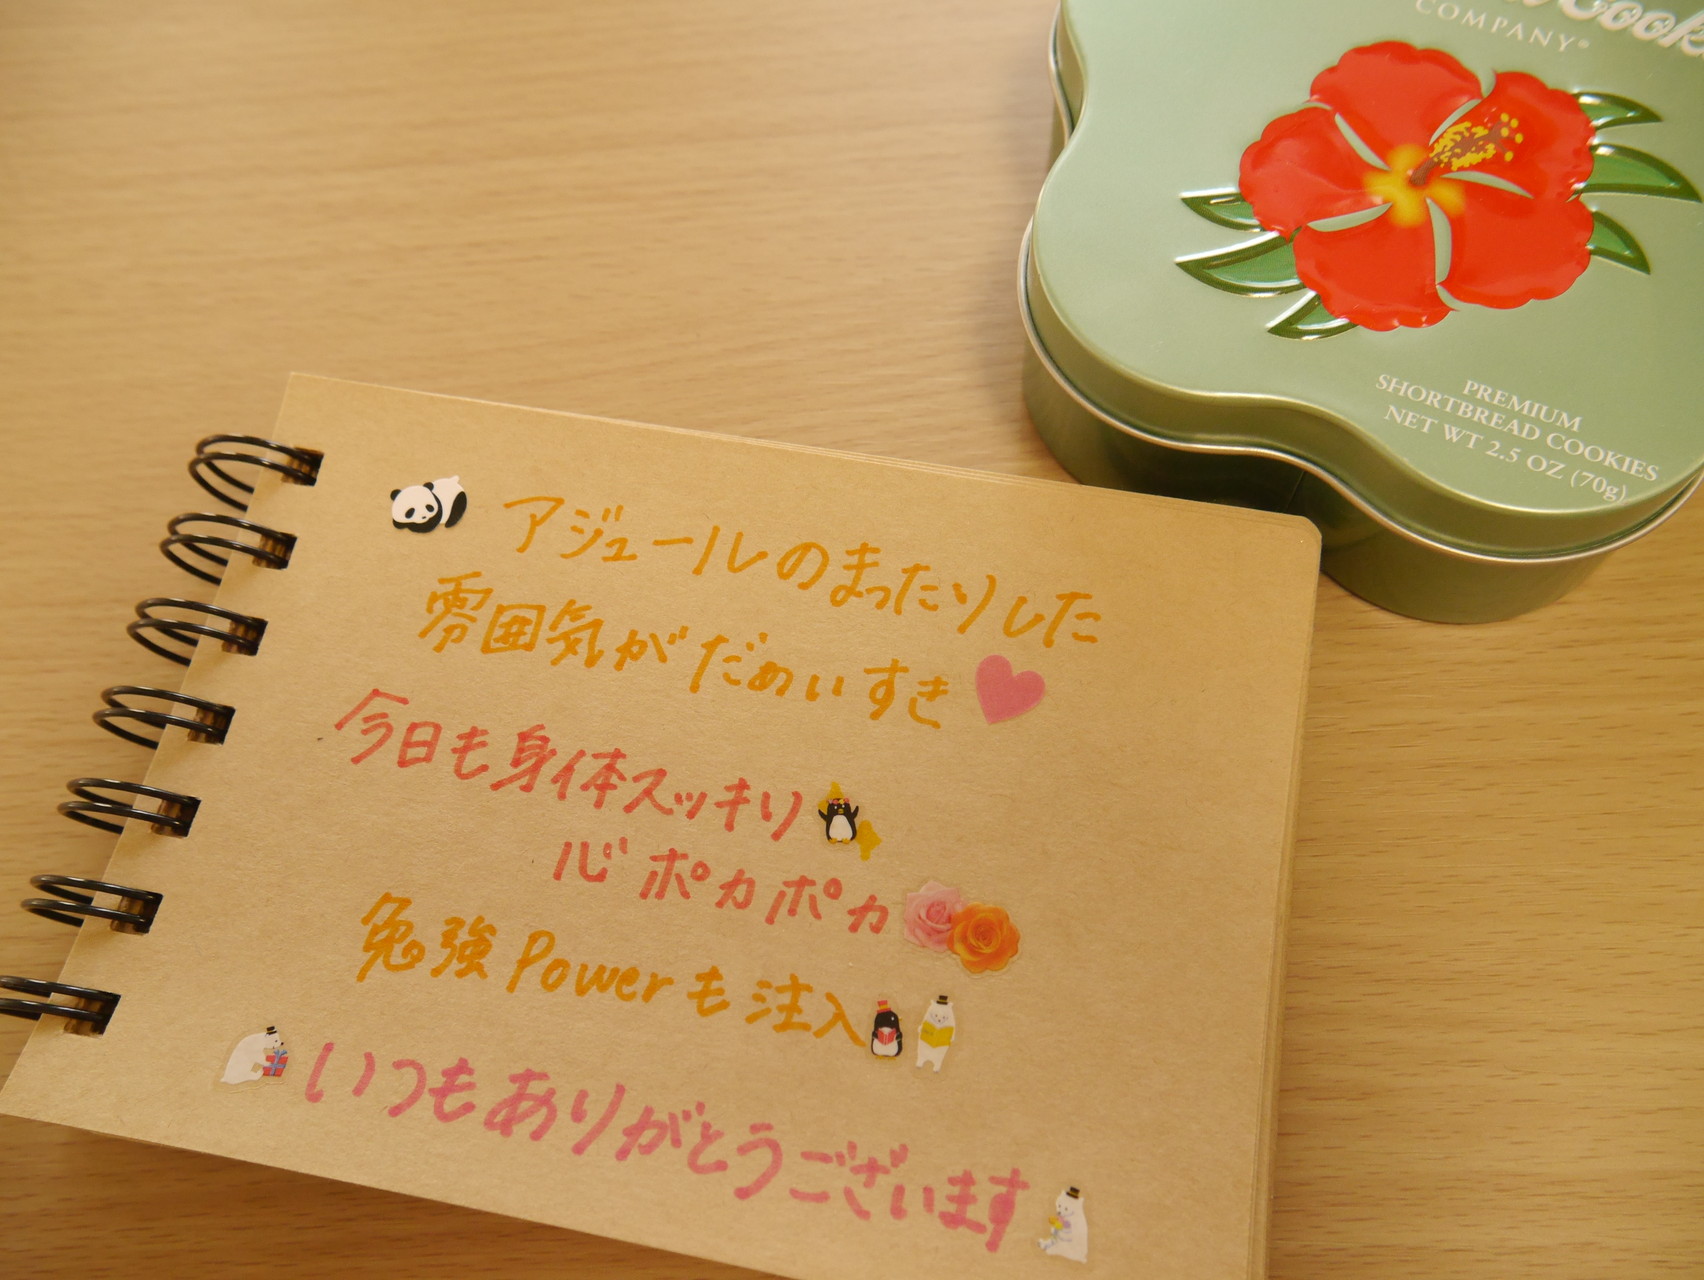 COMPANY®
PREMIUM
SHORTBREAD COOKIES
NET WT 2.5 OZ (70g)
アジュールのまったりした
雰囲気がだぁいすき
今日も身体スッキリ
心ポカポカ
勉強Powerも注入
いつもありがとうございます